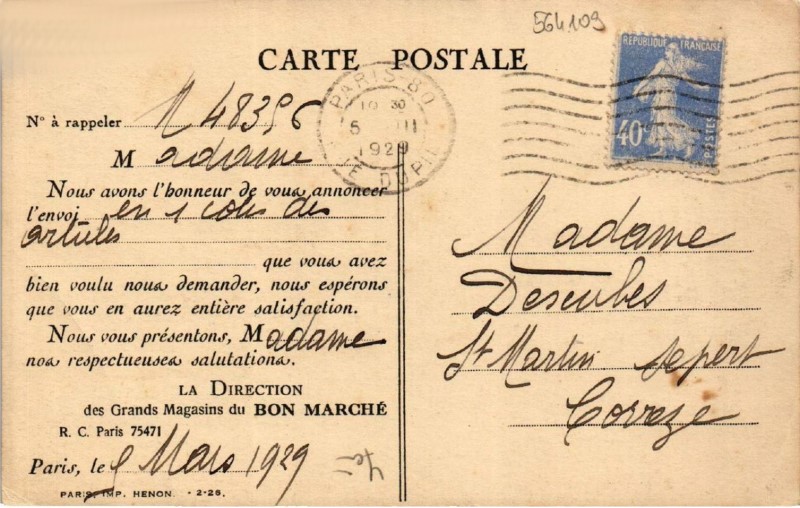 564109
CARTE POSTALE
RÉPUBLIQUE FRANÇAISE
40c
POSTES
PARIS-80
10 30
5 III
1929
R. DUPIN
N° à rappeler N 48396
Madame
Nous avons l'honneur de vous annoncer
l'envoi en 1 colis des
articles
que vous avez
bien voulu nous demander, nous espérons
que vous en aurez entière satisfaction.
Nous vous présentons, Madame
nos respectueuses salutations.
LA DIRECTION
des Grands Magasins du BON MARCHÉ
R. C. Paris 75471
Paris, le 5 Mars 1929
PARIS, IMP. HENON. - 2-26.
Madame
Descubes
St Martin Sepert
Corrèze